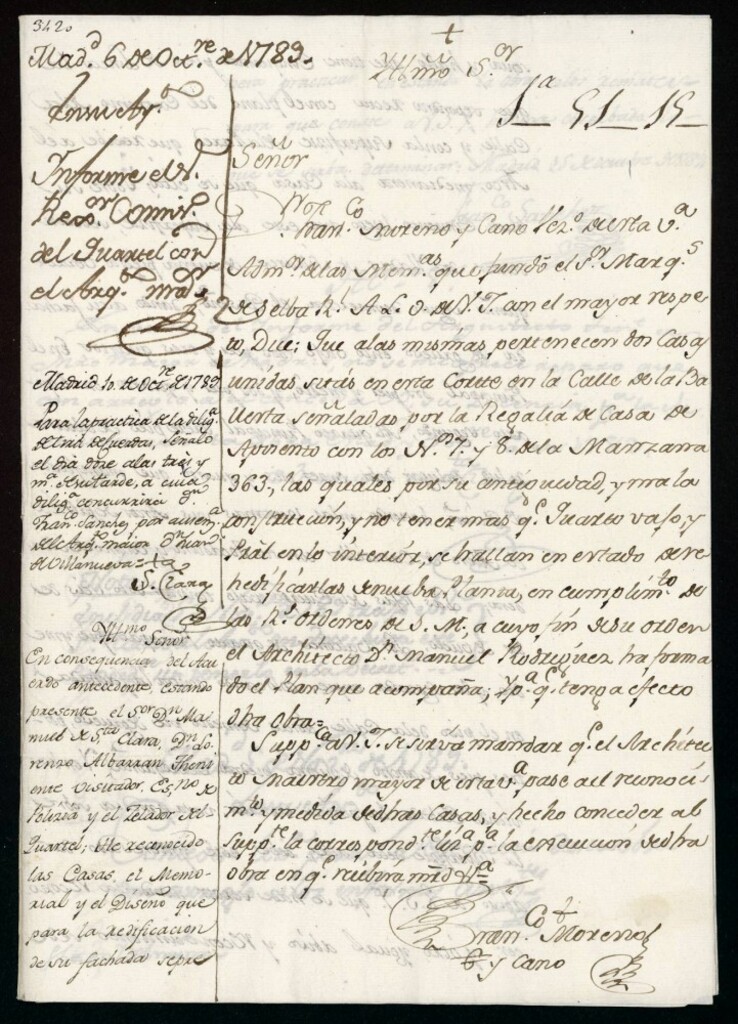 3420
Mad.d 6 de Oct.re de 1789.
En su Ay.to
Informe el S.r
Rex.or Comis.o
del Quartel con
el Arq.o m.or
Madrid 10. de Oct.re de 1789
Para la practica de la dilig.a
de tira de cuerdas, señalo
el dia doze a las tres y
m.a de su tarde, a cuia
dilig.a concurrirà D.n
Fran.co Sanchez por ausen.a
del Arq.o maior D.n Juan
de Villanueva=
S.ta Clara
Yllmo Señor
En consequencia del Acu
erdo antecedente, estando
presente el Sor D.n Ma
nuel de S.ta Clara, D.n Lo
renzo Albarran Theni
ente Visitador, Es.no de
Policia y el Zelador del
Quartel; He reconocido
las Casas, el Memo-
rial y el Diseño que
para la redificacion
de su fachada se pre
+
Yllmo S.or
1a 51 15
Señor
Fran.co Moreno y Cano Vez.o de esta V.a
Adm.or de las Mem.as que fundò el S.r Marq.s
de Selba R.l A L. P. de V. I. con el mayor respe
to, Dice; Que a las mismas, pertenecen dos Casas
unidas sitas en esta Corte en la Calle de la Ba
llesta señaladas por la Regalia de Casa de
Aposento con los N.os 7. y 8. de la Manzana
363., las quales por su antiguedad, y mala
construcion, y no tener mas q.e Quarto vajo, y
Pral en lo interior, se hallan en estado de re
hedificarlas de nueba Planta, en cumplim.to de
las R.s ordenes de S. M., a cuyo fin de su orden
el Architecto D.n Manuel Rodriguez ha forma
do el Plan que acompaña; y p.a q.e tenga efecto
dha obra=
Supp.ca a V. I. se sirva mandar q.e el Archîtec
to Maestro mayor de esta V.a pase a el reconoci-
m.to y medida de dhas Casas, y hecho conceder al
Supp.te la correspond.te liz.a p.a la execucion de dha
obra en q.e recibirà mrd &.a
Fran.co Moreno
y Cano